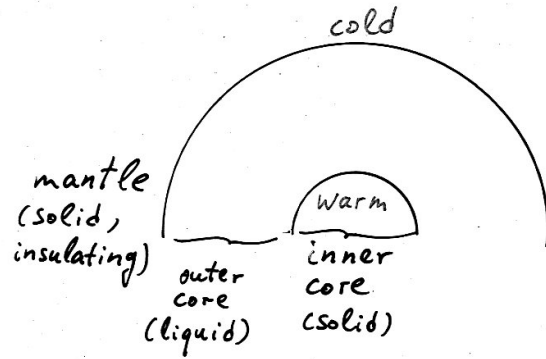 cold
mantle
(solid,
insulating)
warm
outer
core
(liquid)
inner
core
(solid)